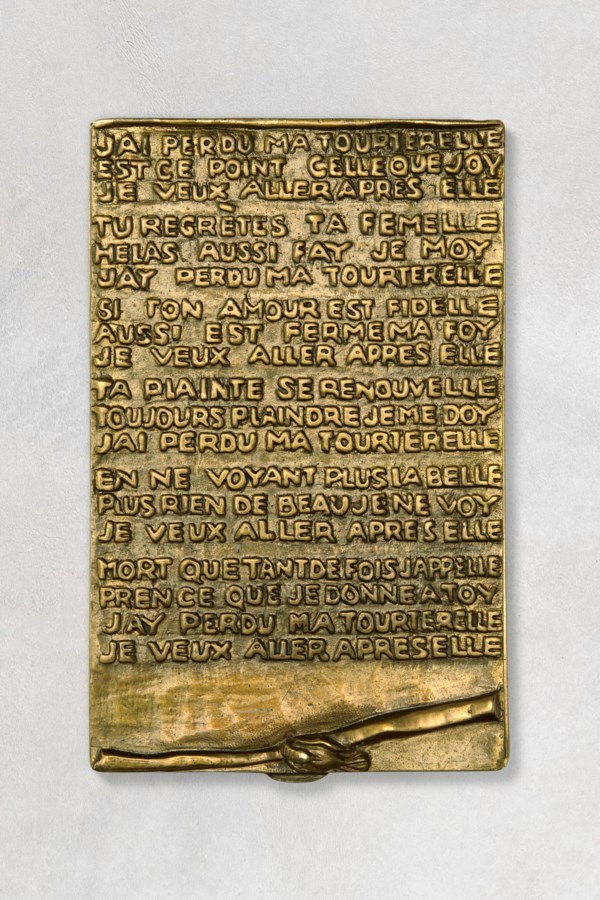 JAI PERDU MA TOURTERELLE
EST CE POINT CELLE QUE JOY
JE VEUX ALLER APRES ELLE
TU REGRÈTES TA FEMELLE
HELAS AUSSI FAY JE MOY
JAY PERDU MA TOURTERELLE
SI TON AMOUR EST FIDELLE
AUSSI EST FERME MA FOY
JE VEUX ALLER APRES ELLE
TA PLAINTE SE RENOUVELLE
TOUJOURS PLAINDRE JE ME DOY
JAI PERDU MA TOURTERELLE
EN NE VOYANT PLUS LA BELLE
PLUS RIEN DE BEAU JE NE VOY
JE VEUX ALLER APRES ELLE
MORT QUE TANT DE FOIS JAPPELLE
PREN CE QUE JE DONNE A TOY
JAY PERDU MA TOURTERELLE
JE VEUX ALLER APRES ELLE